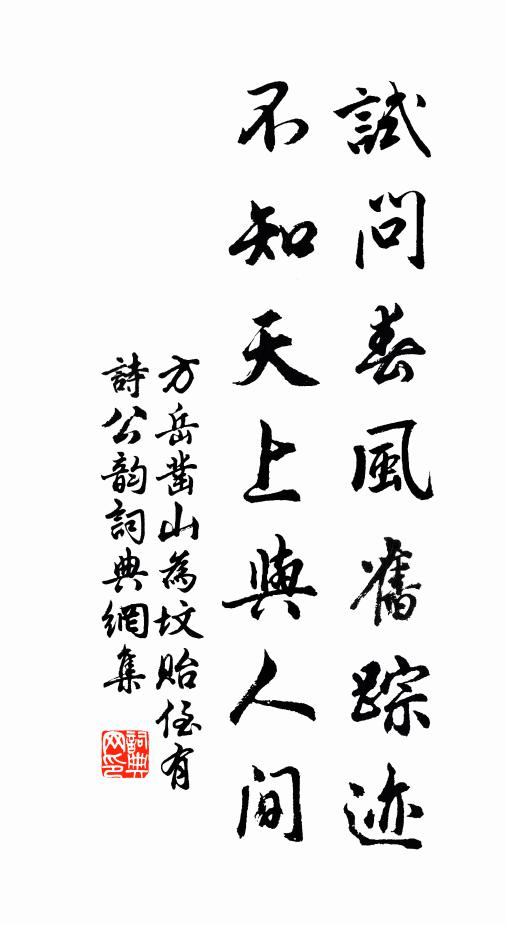 試問春風舊踪迹
不知天上與人間
方岳凿山為坟貽侄有
詩公韵詞典網集
詞典
网印